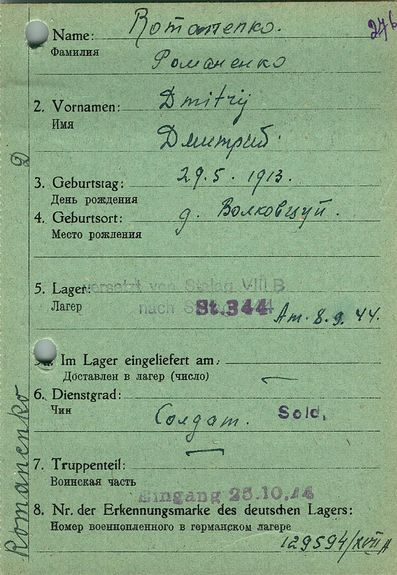 27b
Name: Romanenko.
Фамилия Романенко
2. Vornamen: Dmitrij
Имя Дмитрий.
3. Geburtstag: 29.5.1913.
День рождения
4. Geburtsort: д.
Место рождения
5. Lager: versetzt von Stalag VIII B
Лагер nach St.344 Am. 8.9.44.
Im Lager eingeliefert am
Доставлен в лагер (число) —
6. Dienstgrad:
Чин Солдат. Sold.
7. Truppenteil: —
Воинская часть
Eingang 25.10.44
8. Nr. der Erkennungsmarke des deutschen Lagers:
Номер военнопленного в германском лагере
129594/XVII A
Romanenko D